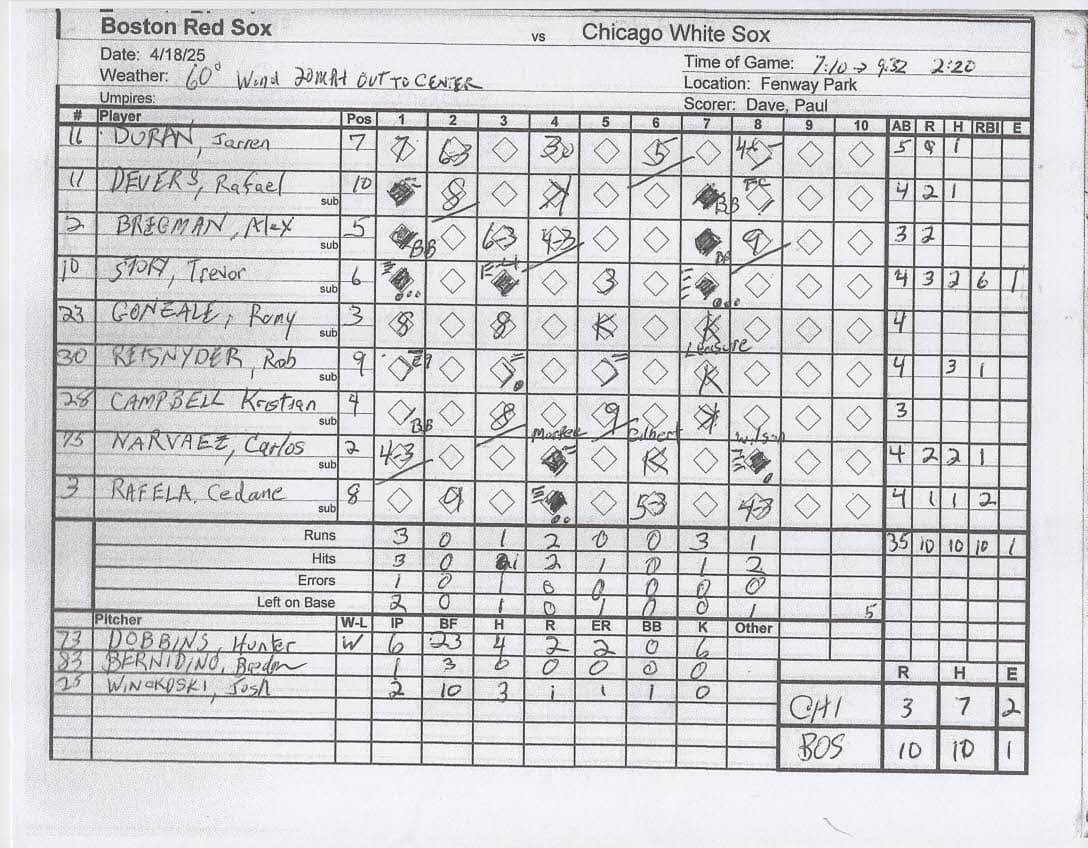 Boston Red Sox vs Chicago White Sox
Date: 4/18/25
Time of Game: 7:10 → 9:32 2:20
Weather: 60° Wind 20MPH OUT TO CENTER
Location: Fenway Park
Umpires:
Scorer: Dave, Paul
# Player Pos 1 2 3 4 5 6 7 8 9 10 AB R H RBI E
16 DURAN, Jarren 7 7 6-3 30 5 5 0 1
11 DEVERS, Rafael 10 8 K BB FC 4 2 1
sub
2 BREGMAN, Alex 5 BB 6-3 4-3 9 3 2
sub
10 STORY, Trevor 6 3 4 3 2 6 1
sub
23 GONZALE, Romy 3 8 8 K K 4
sub
Leasure
30 REFSNYDER, Rob 9 E9 K 4 3 1
sub
28 CAMPBELL Kristian 4 BB 8 9 K 3
sub
Gilbert Wilson
75 NARVAEZ, Carlos 2 4-3 K 4 2 2 1
sub
3 RAFELA, Cedane 8 9 5-3 4-3 4 1 1 2
sub
Runs 3 0 1 2 0 0 3 1 35 10 10 10 1
Hits 3 0 1 2 1 0 1 2
Errors 1 0 1 0 0 0 0 0
Left on Base 2 0 1 0 1 0 0 1 5
Pitcher W-L IP BF H R ER BB K Other
73 DOBBINS, Hunter W 6 23 4 2 2 0 6
83 BERNIDINO, 1 3 0 0 0 0 0
25 WINCKOSKI, Josh 2 10 3 1 1 1 0
R H E
CHI 3 7 2
BOS 10 10 1